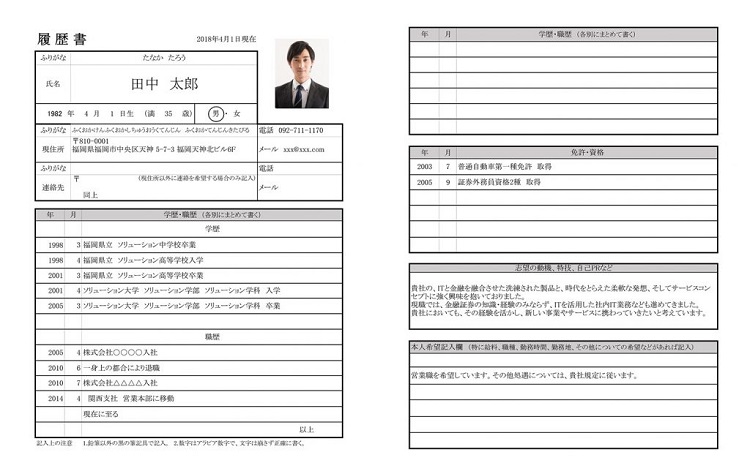 履歴書
2018年4月1日現在
ふりがな たなか たろう
氏名 田中 太郎
1982 年 4 月 1 日生 (満 35 歳) 男・女
ふりがな ふくおかけんふくおかしちゅうおうくてんじん ふくおかてんじんきたびる
電話 092-711-1170
現住所 〒810-0001
福岡県福岡市中央区天神 5-7-3 福岡天神北ビル6F
メール xxx@xxx.com
ふりがな
電話
連絡先 〒 (現住所以外に連絡を希望する場合のみ記入)
同上
メール
年 月 学歴・職歴 (各別にまとめて書く)
学歴
1998 3 福岡県立 ソリューション中学校卒業
1998 4 福岡県立 ソリューション高等学校入学
2001 3 福岡県立 ソリューション高等学校卒業
2001 4 ソリューション大学 ソリューション学部 ソリューション学科 入学
2005 3 ソリューション大学 ソリューション学部 ソリューション学科 卒業
職歴
2005 4 株式会社〇〇〇〇入社
2010 6 一身上の都合により退職
2010 7 株式会社△△△△入社
2014 4 関西支社 営業本部に移動
現在に至る
以上
記入上の注意 1.鉛筆以外の黒の筆記具で記入。 2.数字はアラビア数字で、文字は崩さず正確に書く。
年 月 学歴・職歴 (各別にまとめて書く)
年 月 免許・資格
2003 7 普通自動車第一種免許 取得
2005 9 証券外務員資格2種 取得
志望の動機、特技、自己PRなど
貴社の、ITと金融を融合させた洗練された製品と、時代をとらえた柔軟な発想、そしてサービスコン
セプトに強く興味を抱いておりました。
現職では、金融証券の知識・経験のみならず、ITを活用した社内IT業務なども進めてきました。
貴社においても、その経験を活かし、新しい事業やサービスに携わっていきたいと考えています。
本人希望記入欄 (特に給料、職種、勤務時間、勤務地、その他についての希望などがあれば記入)
営業職を希望しています。その他処遇については、貴社規定に従います。